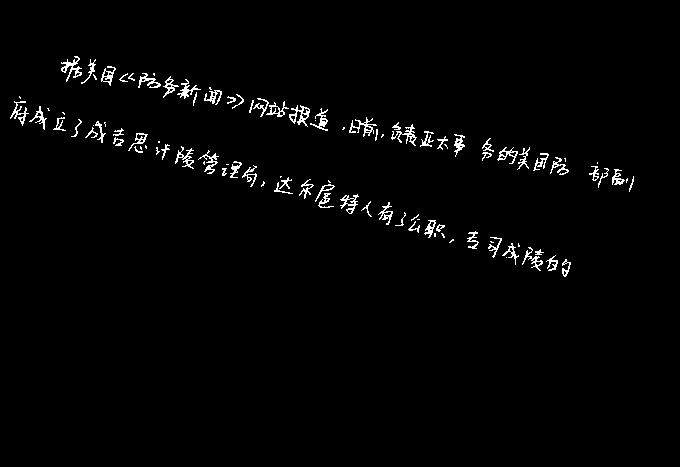 据美国《防务新闻》网站报道,日前,负责亚太事务的美国防部副
府成立了成吉思汗陵管理局,达尔扈特人有了公职,专司成陵的